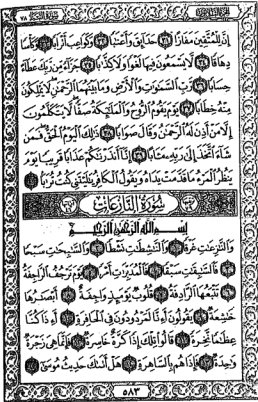 سورة النبأ ٧٨
إِنَّ لِلْمُتَّقِينَ مَفَازًا ٣١ حَدَائِقَ وَأَعْنَابًا ٣٢ وَكَوَاعِبَ أَتْرَابًا ٣٣ وَكَأْسًا
دِهَاقًا ٣٤ لَّا يَسْمَعُونَ فِيهَا لَغْوًا وَلَا كِذَّابًا ٣٥ جَزَاءً مِّن رَّبِّكَ عَطَاءً
حِسَابًا ٣٦ رَّبِّ السَّمَاوَاتِ وَالْأَرْضِ وَمَا بَيْنَهُمَا الرَّحْمَٰنِ لَا يَمْلِكُونَ
مِنْهُ خِطَابًا ٣٧ يَوْمَ يَقُومُ الرُّوحُ وَالْمَلَائِكَةُ صَفًّا لَّا يَتَكَلَّمُونَ
إِلَّا مَنْ أَذِنَ لَهُ الرَّحْمَٰنُ وَقَالَ صَوَابًا ٣٨ ذَٰلِكَ الْيَوْمُ الْحَقُّ فَمَن
شَاءَ اتَّخَذَ إِلَىٰ رَبِّهِ مَآبًا ٣٩ إِنَّا أَنذَرْنَاكُمْ عَذَابًا قَرِيبًا يَوْمَ
يَنظُرُ الْمَرْءُ مَا قَدَّمَتْ يَدَاهُ وَيَقُولُ الْكَافِرُ يَا لَيْتَنِي كُنتُ تُرَابًا ٤٠
سُورَةُ النَّازِعَاتِ
بِسْمِ اللَّهِ الرَّحْمَٰنِ الرَّحِيمِ
وَالنَّازِعَاتِ غَرْقًا ١ وَالنَّاشِطَاتِ نَشْطًا ٢ وَالسَّابِحَاتِ سَبْحًا
٣ فَالسَّابِقَاتِ سَبْقًا ٤ فَالْمُدَبِّرَاتِ أَمْرًا ٥ يَوْمَ تَرْجُفُ الرَّاجِفَةُ
٦ تَتْبَعُهَا الرَّادِفَةُ ٧ قُلُوبٌ يَوْمَئِذٍ وَاجِفَةٌ ٨ أَبْصَارُهَا
خَاشِعَةٌ ٩ يَقُولُونَ أَإِنَّا لَمَرْدُودُونَ فِي الْحَافِرَةِ ١٠ أَإِذَا كُنَّا
عِظَامًا نَّخِرَةً ١١ قَالُوا تِلْكَ إِذًا كَرَّةٌ خَاسِرَةٌ ١٢ فَإِنَّمَا هِيَ زَجْرَةٌ
وَاحِدَةٌ ١٣ فَإِذَا هُم بِالسَّاهِرَةِ ١٤ هَلْ أَتَاكَ حَدِيثُ مُوسَىٰ ١٥
٥٨٣